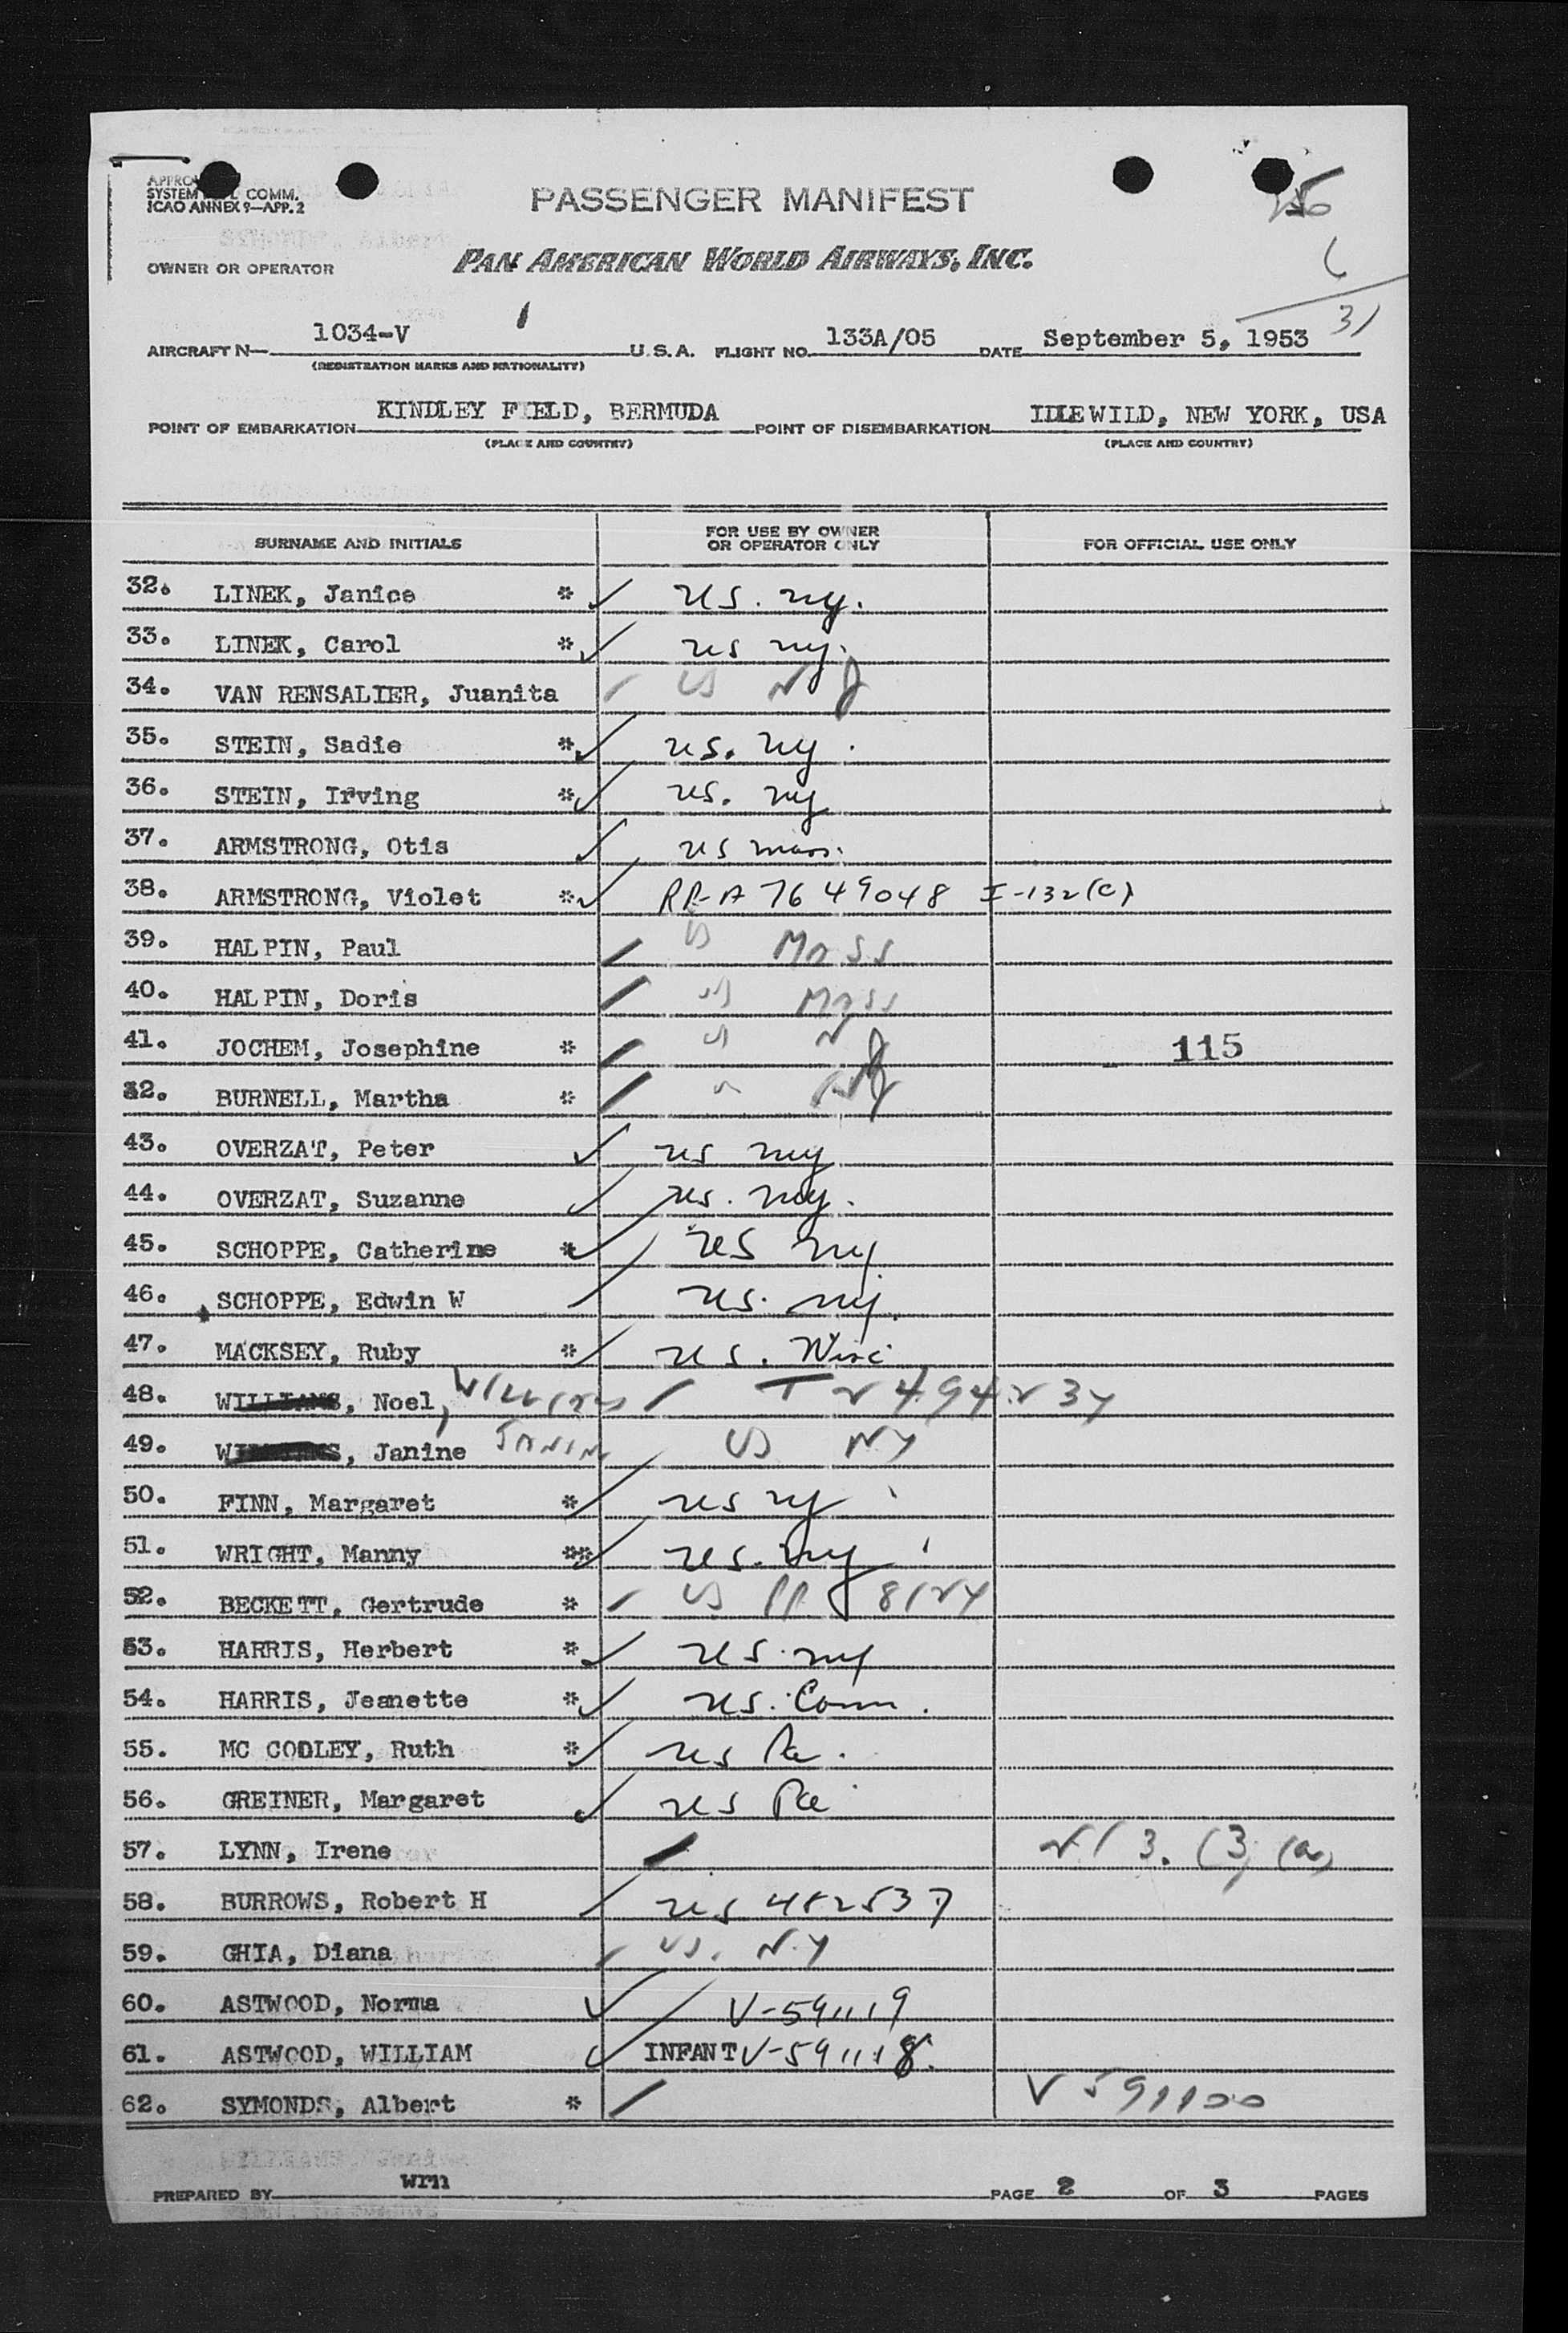 SYSTEM COMM.
ICAO ANNEX 9—APP. 2
PASSENGER MANIFEST
OWNER OR OPERATOR PAN AMERICAN WORLD AIRWAYS, INC.
6
31
AIRCRAFT N— 1034-V U.S.A. FLIGHT NO. 133A/05 DATE September 5, 1953
(REGISTRATION MARKS AND NATIONALITY)
POINT OF EMBARKATION KINDLEY FIELD, BERMUDA POINT OF DISEMBARKATION IDLEWILD, NEW YORK, USA
(PLACE AND COUNTRY) (PLACE AND COUNTRY)
SURNAME AND INITIALS FOR USE BY OWNER OR OPERATOR ONLY FOR OFFICIAL USE ONLY
32. LINEK, Janice * ✓ US. ny.
33. LINEK, Carol * ✓ US ny.
34. VAN RENSALIER, Juanita US NJ
35. STEIN, Sadie * ✓ US. ny.
36. STEIN, Irving * ✓ US. ny
37. ARMSTRONG, Otis ✓ US mass.
38. ARMSTRONG, Violet * ✓ RP-A 7649048 I-132(c)
39. HALPIN, Paul US MASS
40. HALPIN, Doris US MASS
41. JOCHEM, Josephine * US NJ 115
42. BURNELL, Martha * NJ
43. OVERZAT, Peter ✓ US ny
44. OVERZAT, Suzanne ✓ US. ny.
45. SCHOPPE, Catherine * ✓ US ny
46. SCHOPPE, Edwin W US. ny.
47. MACKSEY, Ruby * US. Wisc
48. WILLIAMS, Noel,
49. WILLIAMS, Janine US NY
50. FINN, Margaret * US ny
51. WRIGHT, Manny ** US. ny
52. BECKETT, Gertrude * US PP
53. HARRIS, Herbert * ✓ US. ny
54. HARRIS, Jeanette * ✓ US. Conn.
55. MC CODLEY, Ruth * ✓ US Pa.
56. GREINER, Margaret ✓ US Pa
57. LYNN, Irene
58. BURROWS, Robert H US 482537
59. GHIA, Diana US. N.Y
60. ASTWOOD, Norma ✓ V-591119
61. ASTWOOD, WILLIAM ✓ INFANT V-591118.
62. SYMONDS, Albert * V 591100
PREPARED BY wrm PAGE 2 OF 3 PAGES